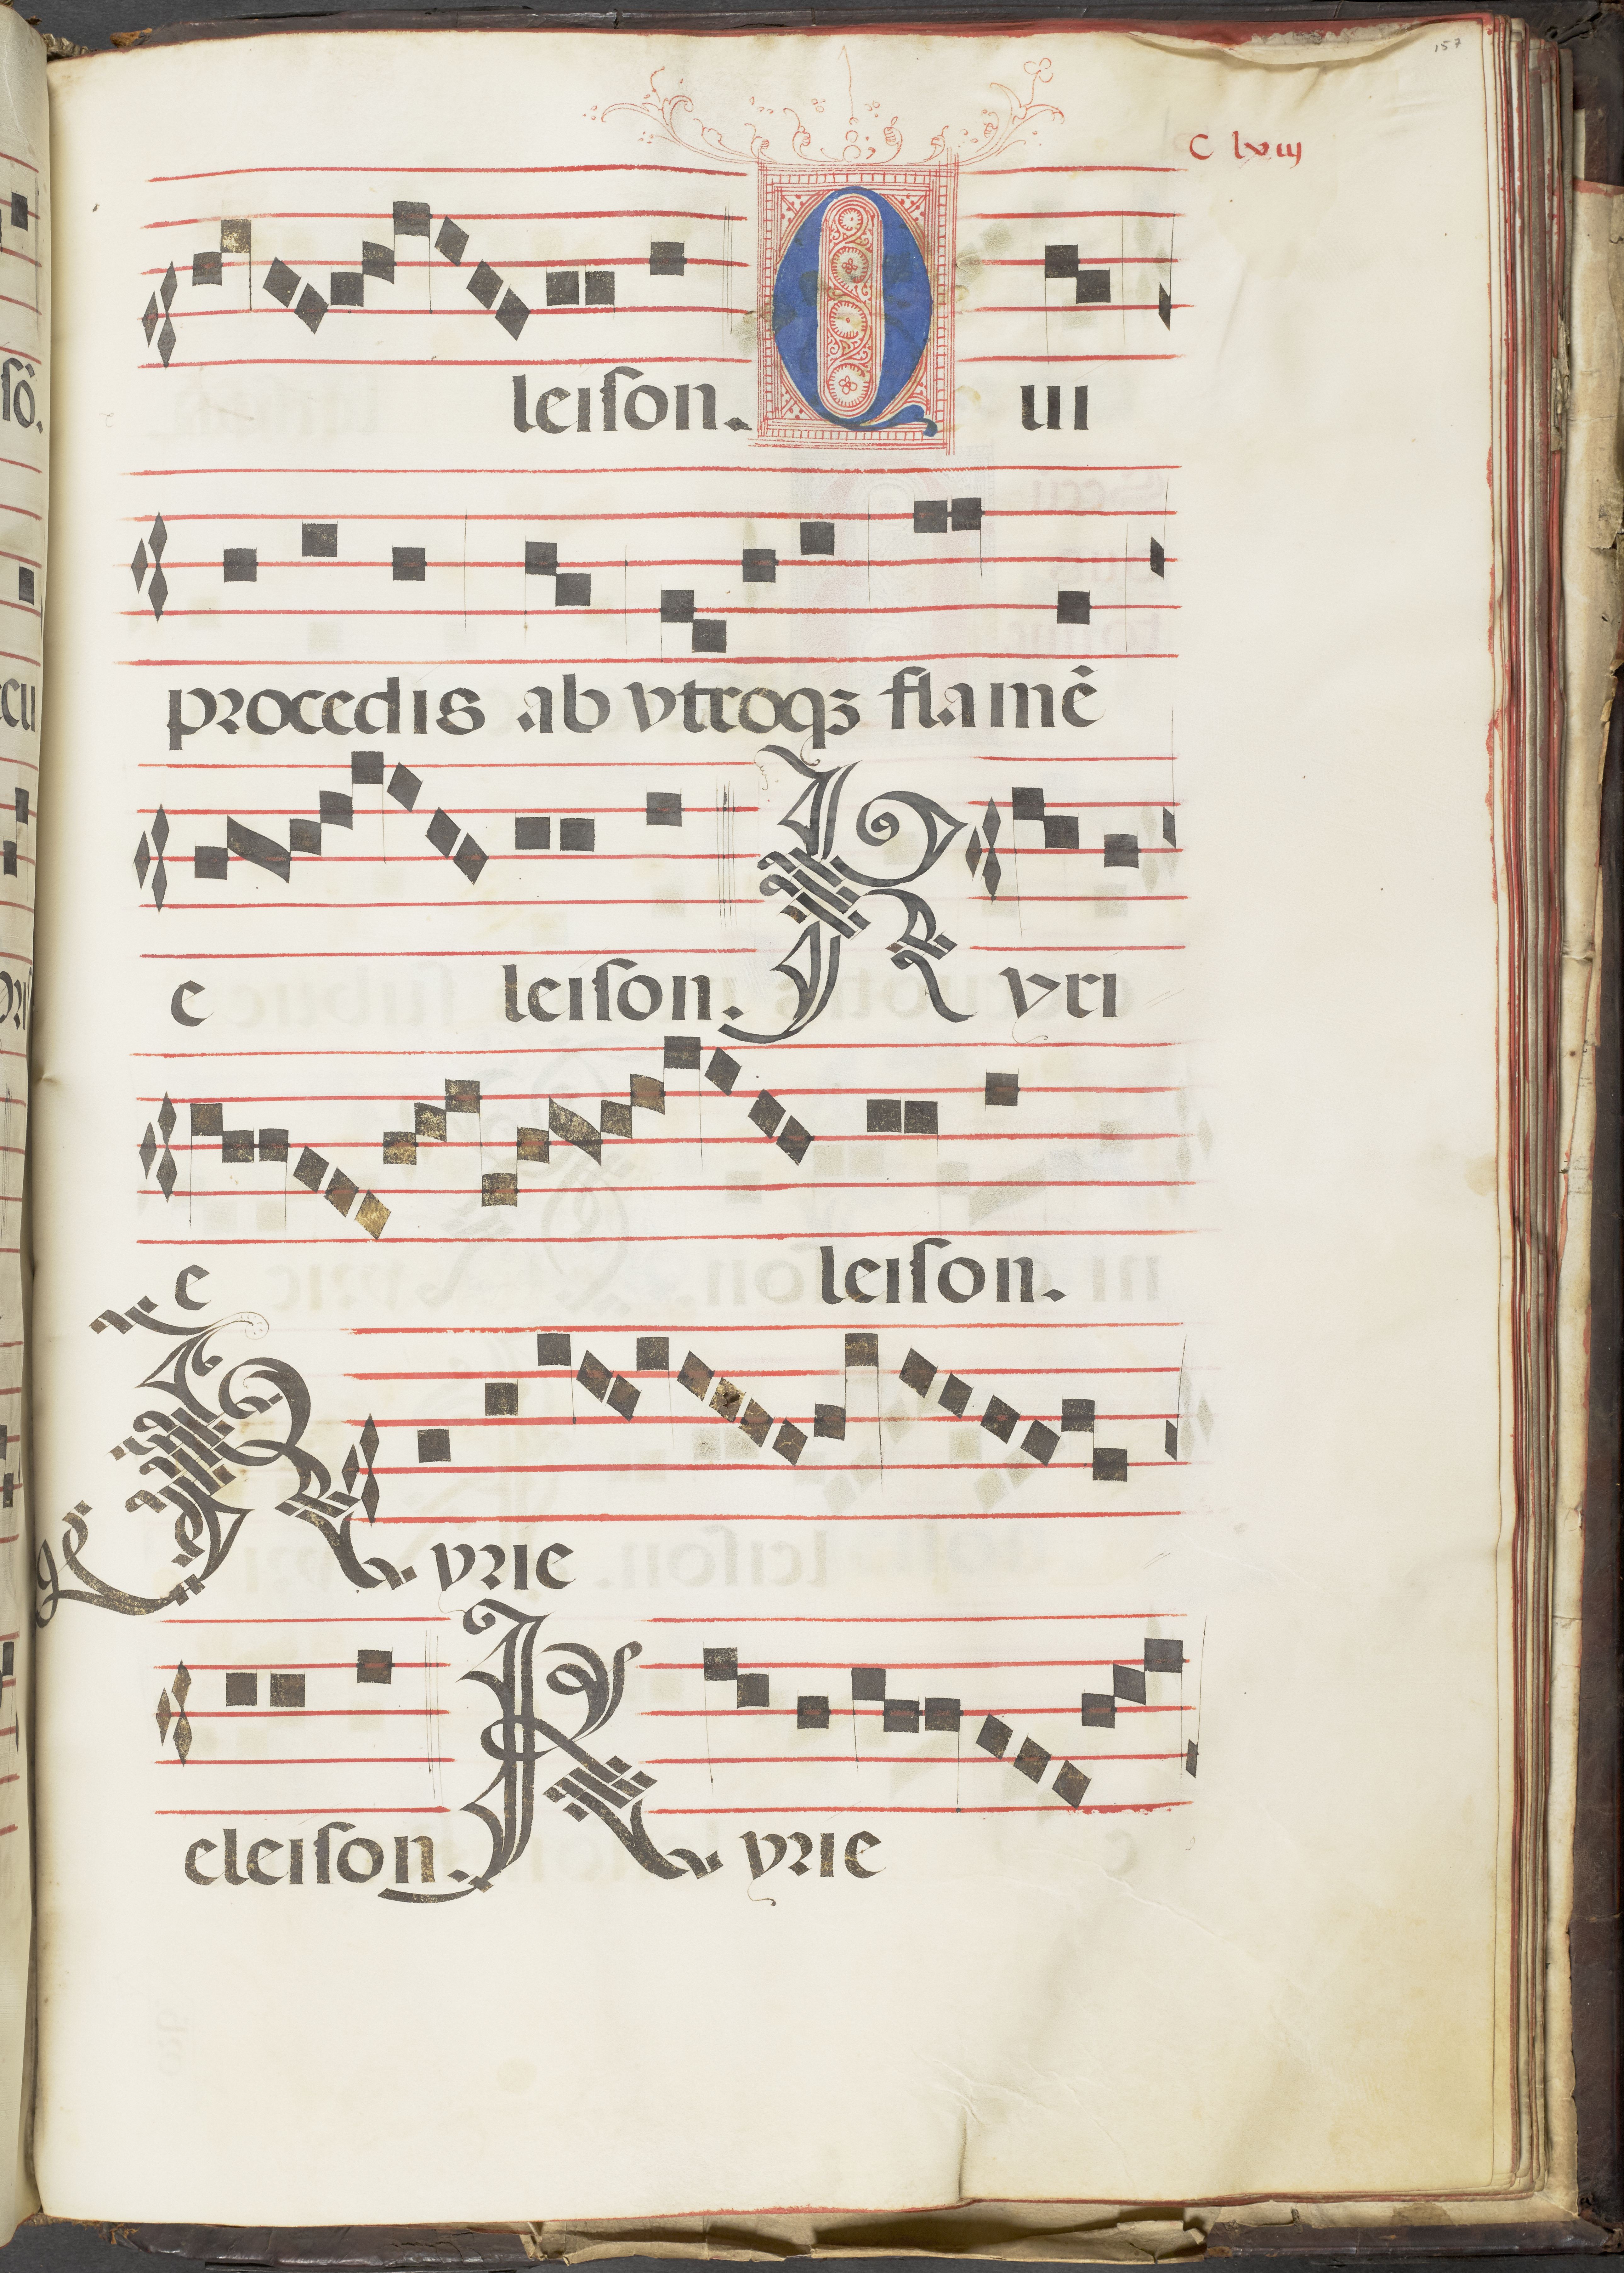 157
C lxiij
leison. Qui
procedis ab vtroqꝫ flamē
e leison. Kyri
e leison.
Kyrie
eleison. Kyrie